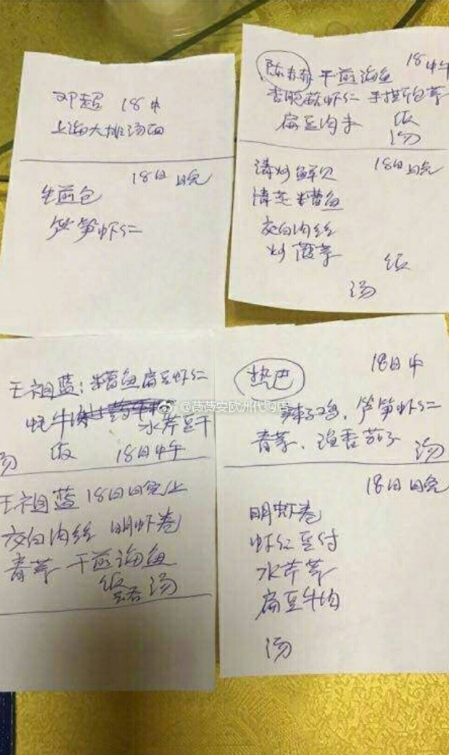 邓超 18中
上海大排汤面
18日晚
生煎包
芦笋虾仁
18中午
干煎海鱼
虾仁 手撕包菜
扁豆肉丝 饭
汤
清炒鲜贝 18日晚
清蒸糟鱼
交白肉丝
炒菠菜
饭
汤
王祖蓝:糟鱼扁豆虾仁
水芹豆干
汤 饭 18日中午
王祖蓝 18日晚上
交白肉丝 明虾卷
青菜 干煎海鱼
饭 汤
热巴 18日中
辣子鸡,芦笋虾仁
青菜,鱼香茄子 汤
18日晚
明虾卷
虾仁豆付
水芹菜
扁豆牛肉
汤